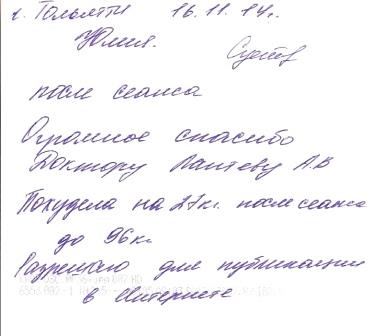 г. Тольятти 16.11.14г.
Юлия.
после сеанса
Огромное спасибо
Доктору Лаптеву А.В
Похудела на 27кг. после сеанса
до 96кг
Разрешаю для публикации
в Интернете